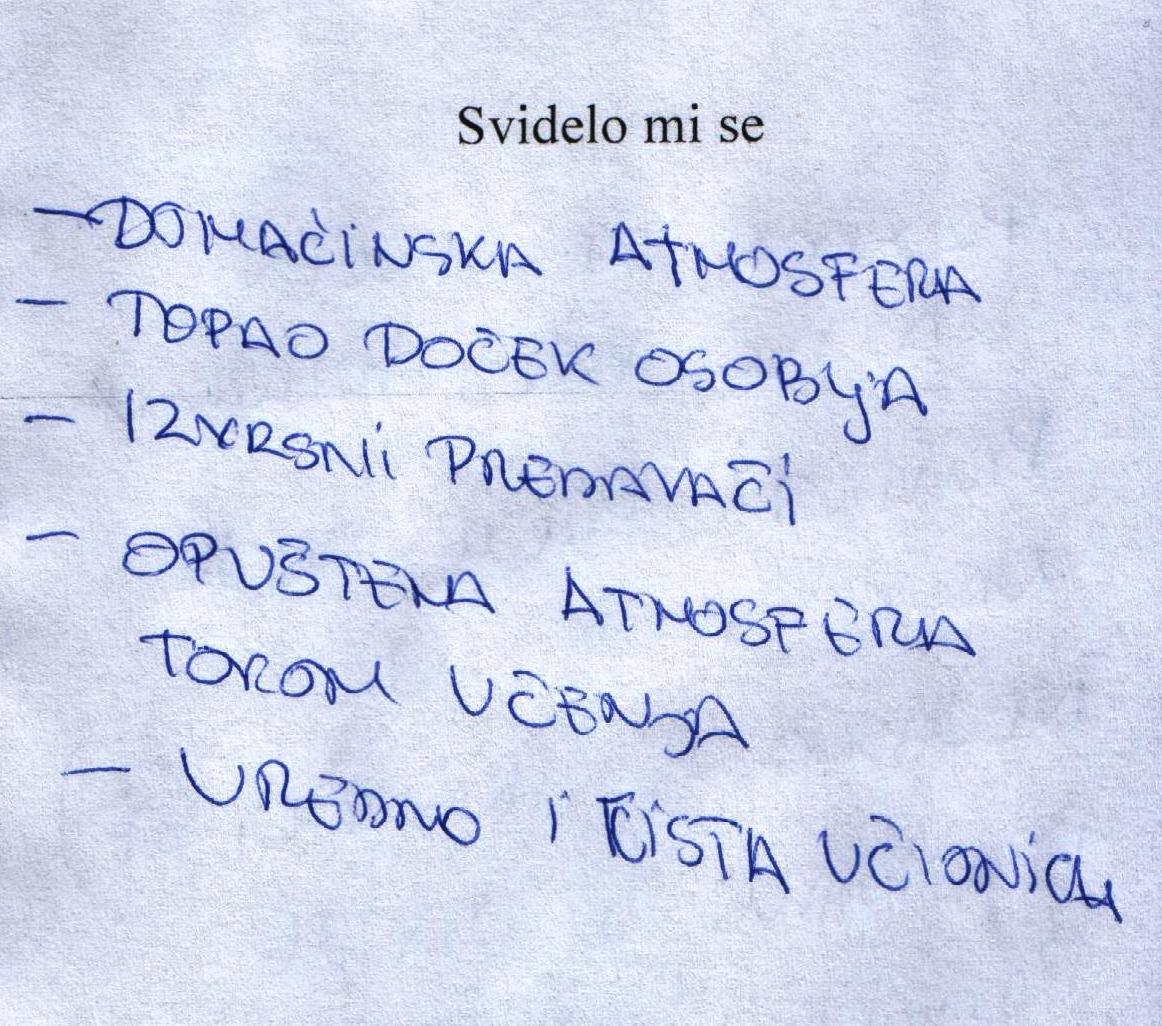 Svidelo mi se
- DOMAĆINSKA ATMOSFERA
- TOPAO DOČEK OSOBLJA
- IZVRSNII PREDAVAČI
- OPUŠTENA ATMOSFERA
TOKOM UČENJA
- UREDNO I ČISTA UČIONICA